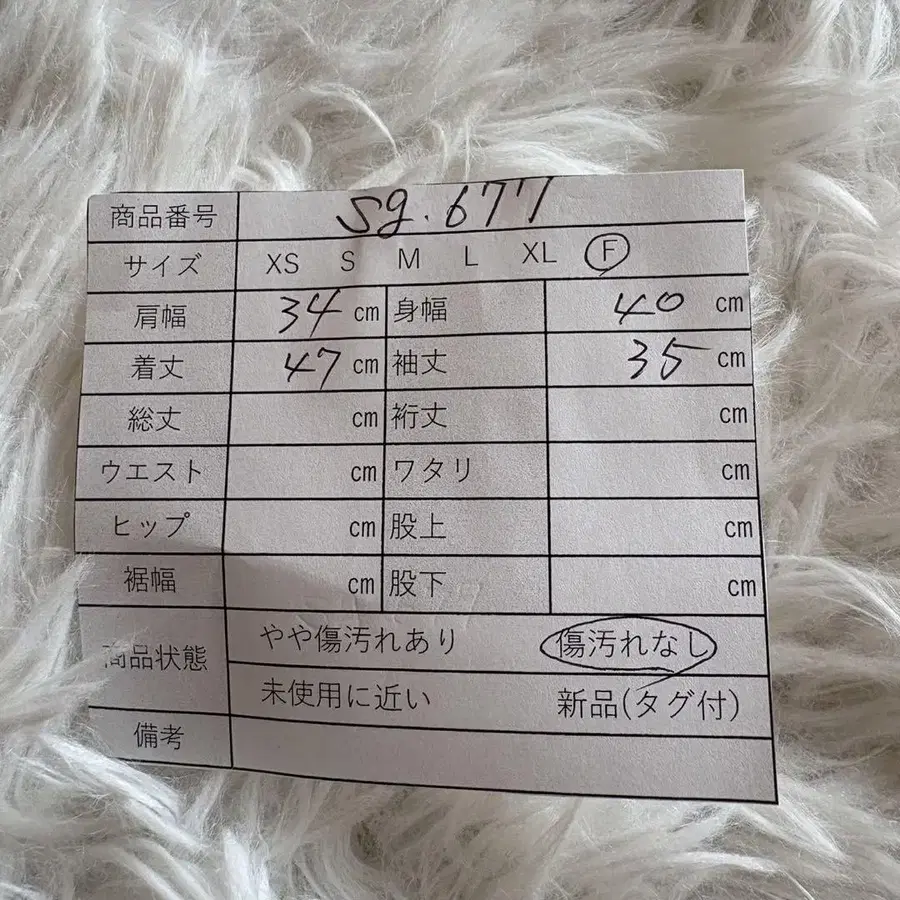 商品番号 sg.677
サイズ XS S M L XL F
肩幅 34 cm 身幅 40 cm
着丈 47 cm 袖丈 35 cm
総丈 cm 裄丈 cm
ウエスト cm ワタリ cm
ヒップ cm 股上 cm
裾幅 cm 股下 cm
商品状態 やや傷汚れあり 傷汚れなし
未使用に近い 新品(タグ付)
備考